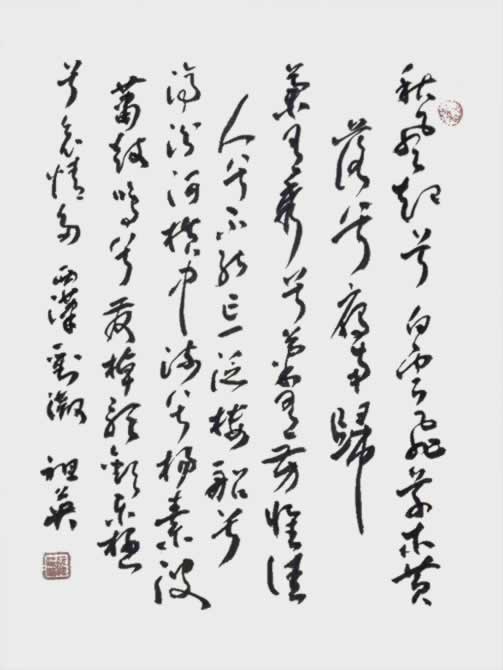 秋風起兮白雲飛草木黄
落兮雁南歸
蘭有秀兮菊有芳懷佳
人兮不能忘泛樓船兮
濟汾河橫中流兮揚素波
簫鼓鳴兮發棹歌歡樂極
兮哀情多 西漢劉徹 祖英